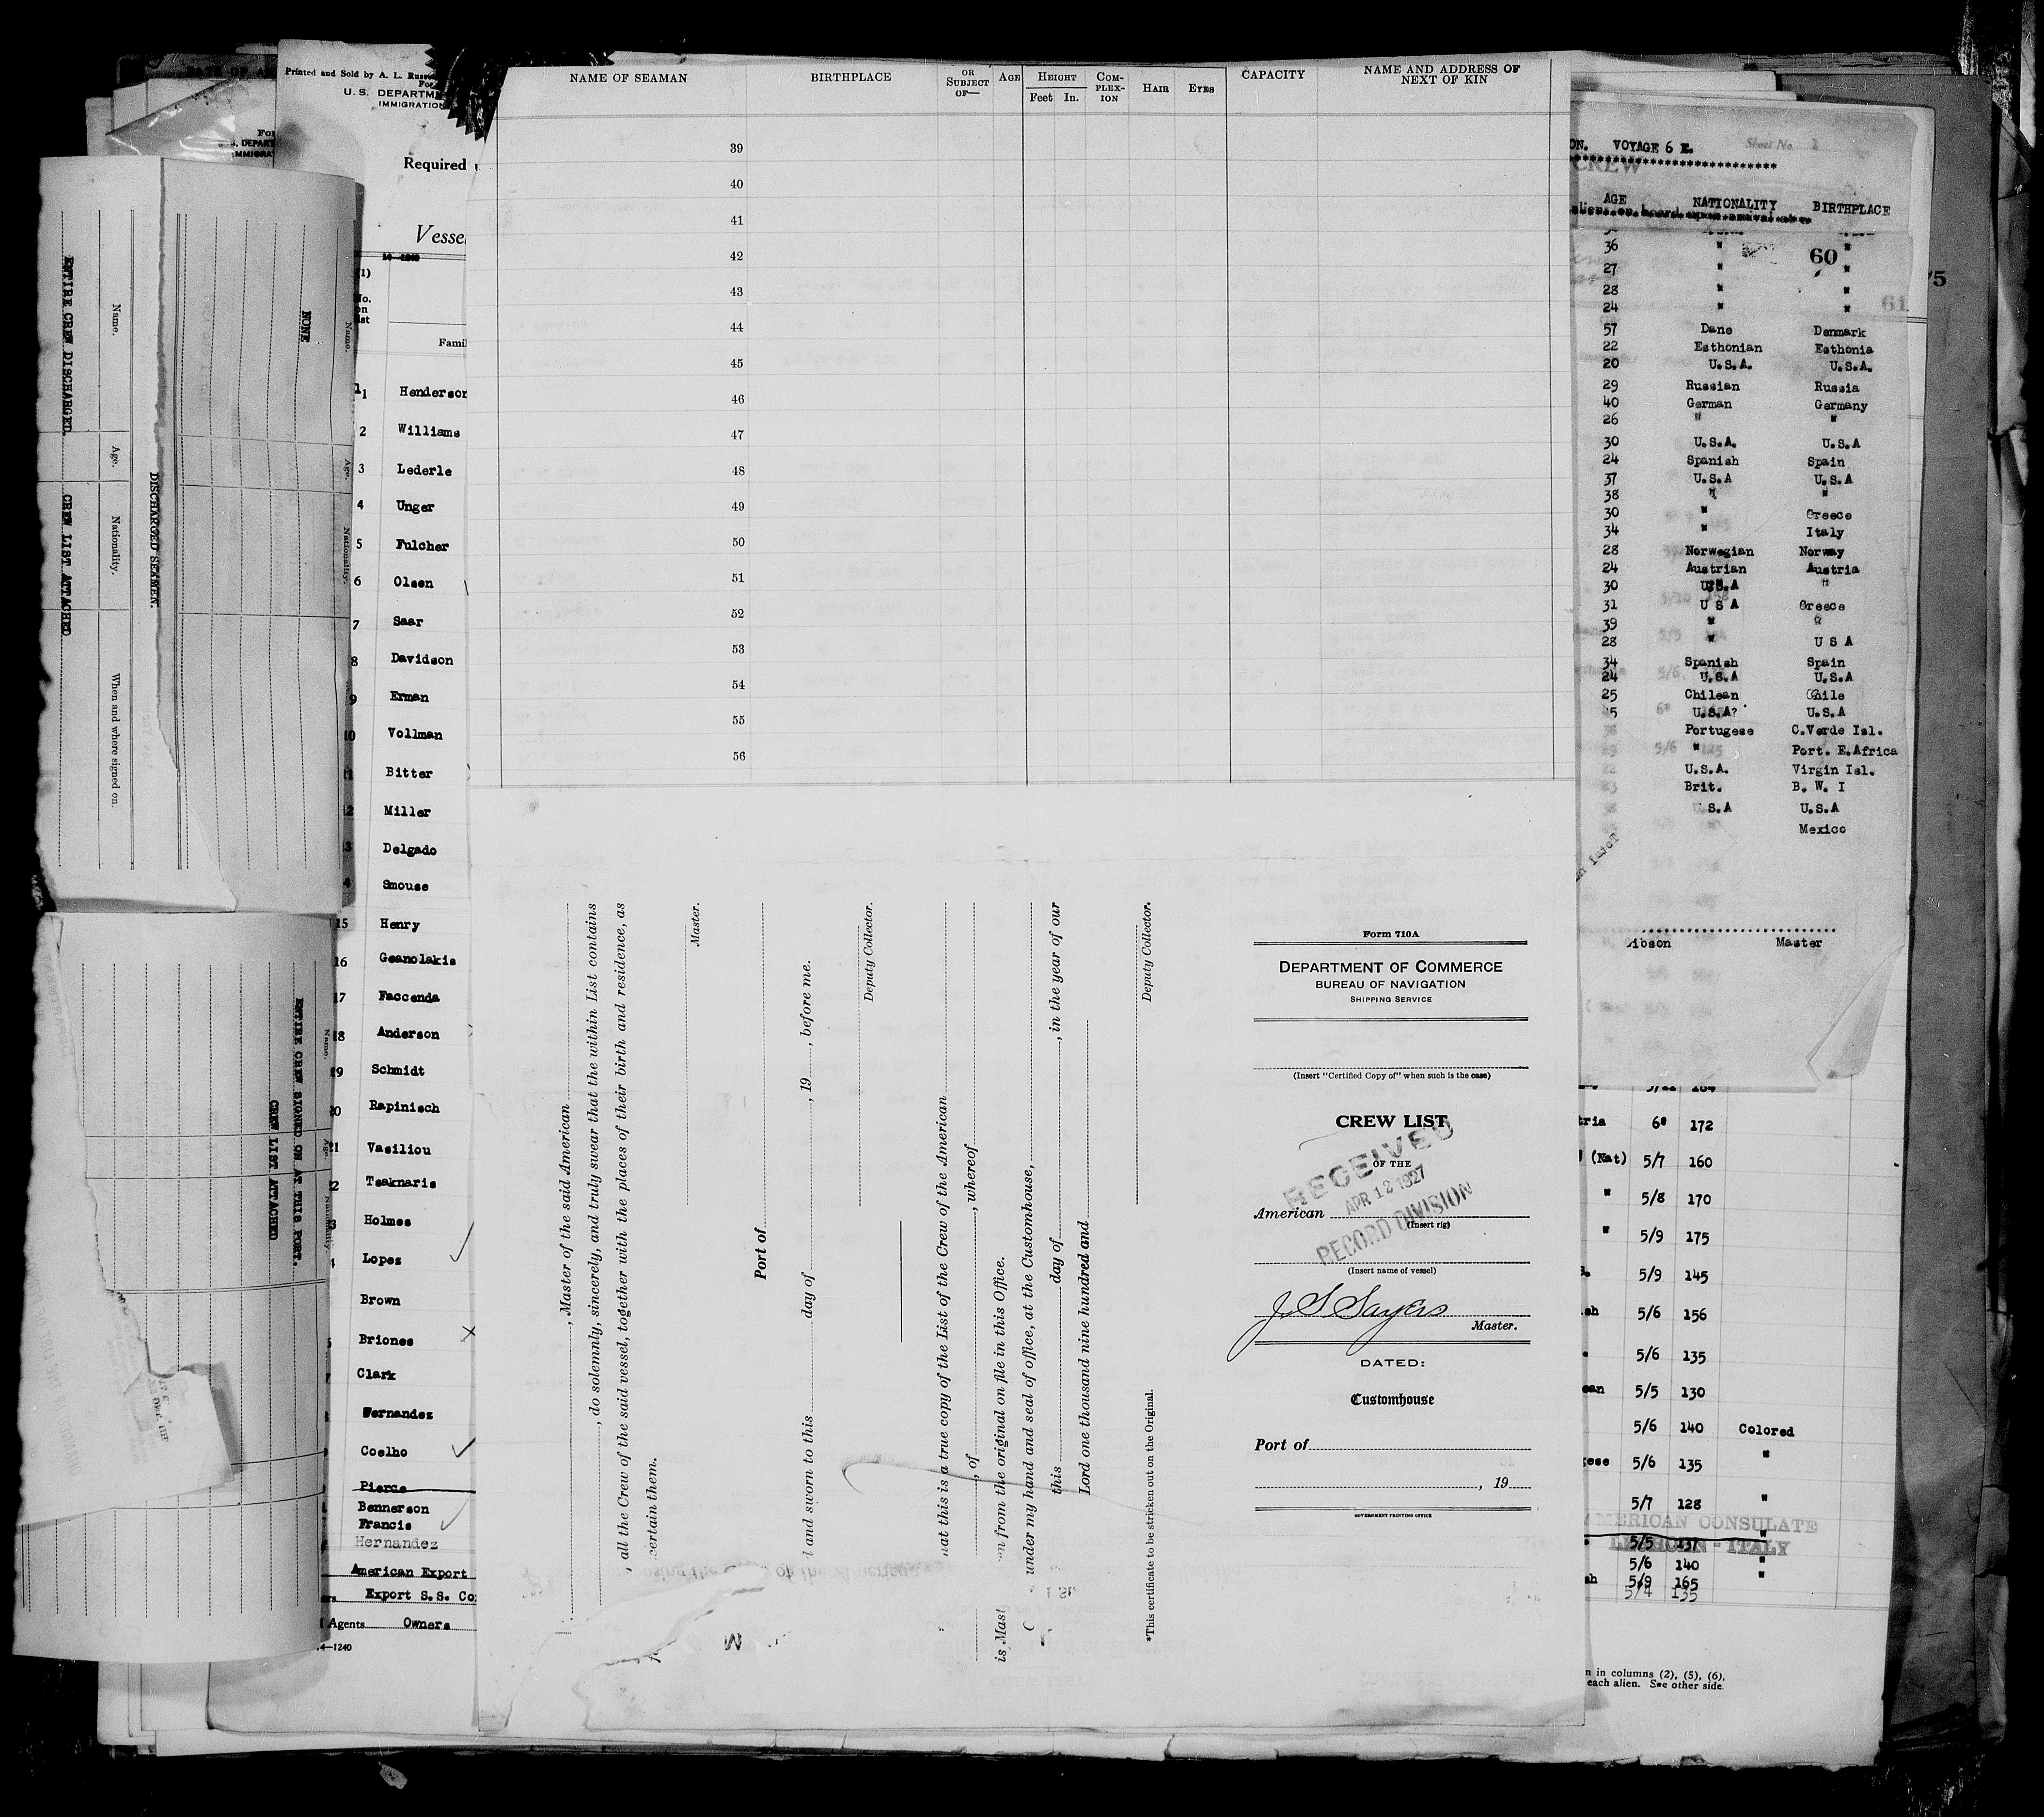 Printed and Sold by A. L.
U. S.
IMMIGRATION
Required
Vesse
14—1240
Name.
Age.
Nationality.
When and where signed on.
ENTIRE CREW DISCHARGED.
CREW LIST ATTACHED
DISCHARGED SEAMEN.
NONE
Name.
Age.
Nationality.
ENTIRE CREW SIGNED ON AT THIS PORT.
CREW LIST ATTACHED
Name.
Age.
Nationality.
1 Henderson
2 Williams
3 Lederle
4 Unger
5 Fulcher
6 Olsen
7 Saar
8 Davidson
9 Erman
10 Vollman
11 Bitter
12 Miller
Delgado
Smouse
15 Henry
16 Geanolakis
17 Faccenda
18 Anderson
19 Schmidt
20 Rapinisch
21 Vasiliou
Tsaknaris
Holmes
Lopez
Brown
Briones
Clark
Fernandez
Coelho
Pierce
Bennerson
Francis
Hernandez
American Export
Export S.S. Co
Agents Owners
4—1240
NAME OF SEAMAN
BIRTHPLACE
OR SUBJECT OF—
AGE
HEIGHT
Feet In.
COM-PLEX-ION
HAIR
EYES
CAPACITY
NAME AND ADDRESS OF NEXT OF KIN
39
40
41
42
43
44
45
46
47
48
49
50
51
52
53
54
55
56
, Master of the said American
, do solemnly, sincerely, and truly swear that the within List contains
all the Crew of the said vessel, together with the places of their birth and residence, as
certain them.
Master.
Port of
and sworn to this day of , 19 , before me.
Deputy Collector.
at this is a true copy of the List of the Crew of the American
is Mast , of , whereof
from the original on file in this Office.
under my hand and seal of office, at the Customhouse,
this day of , in the year of our
Lord one thousand nine hundred and
Deputy Collector.
*This certificate to be stricken out on the Original.
Form 710A
DEPARTMENT OF COMMERCE
BUREAU OF NAVIGATION
SHIPPING SERVICE
(Insert "Certified Copy of" when such is the case)
CREW LIST
OF THE
RECEIVED
APR 12 1927
RECORD DIVISION
American
(Insert rig)
(Insert name of vessel)
J S Sayers
Master.
DATED:
Customhouse
Port of
, 19
GOVERNMENT PRINTING OFFICE
ON. VOYAGE 6 E. Sheet No. 2
CREW
AGE NATIONALITY BIRTHPLACE
60
61
36 " "
27 " "
28 " "
24 " "
57 Dane Denmark
22 Esthonian Esthonia
20 U.S.A. U.S.A.
29 Russian Russia
40 German Germany
26 " "
30 U.S.A. U.S.A
24 Spanish Spain
37 U.S.A U.S.A
38 " "
30 " Greece
34 " Italy
28 Norwegian Norway
24 Austrian Austria
30 U.S.A "
31 U S A Greece
39 " "
28 " U S A
34 Spanish Spain
24 U.S.A U.S.A
25 Chilean Chile
45 U.S.A? U.S.A
Portugese C.Verde Isl.
" Port. E.Africa
U.S.A. Virgin Isl.
Brit. B. W. I
U.S.A U.S.A
Mexico
ibson Master
tria 6" 172
(Nat) 5/7 160
" 5/8 170
" 5/9 175
5/9 145
sh 5/6 156
5/6 135
ean 5/5 130
5/6 140 Colored
gese 5/6 135 "
5/7 128 "
AMERICAN CONSULATE
LEGHORN - ITALY
5/5 137 "
5/6 140 "
sh 5/9 165 "
5/4 135
n in columns (2), (5), (6),
each alien. See other side.